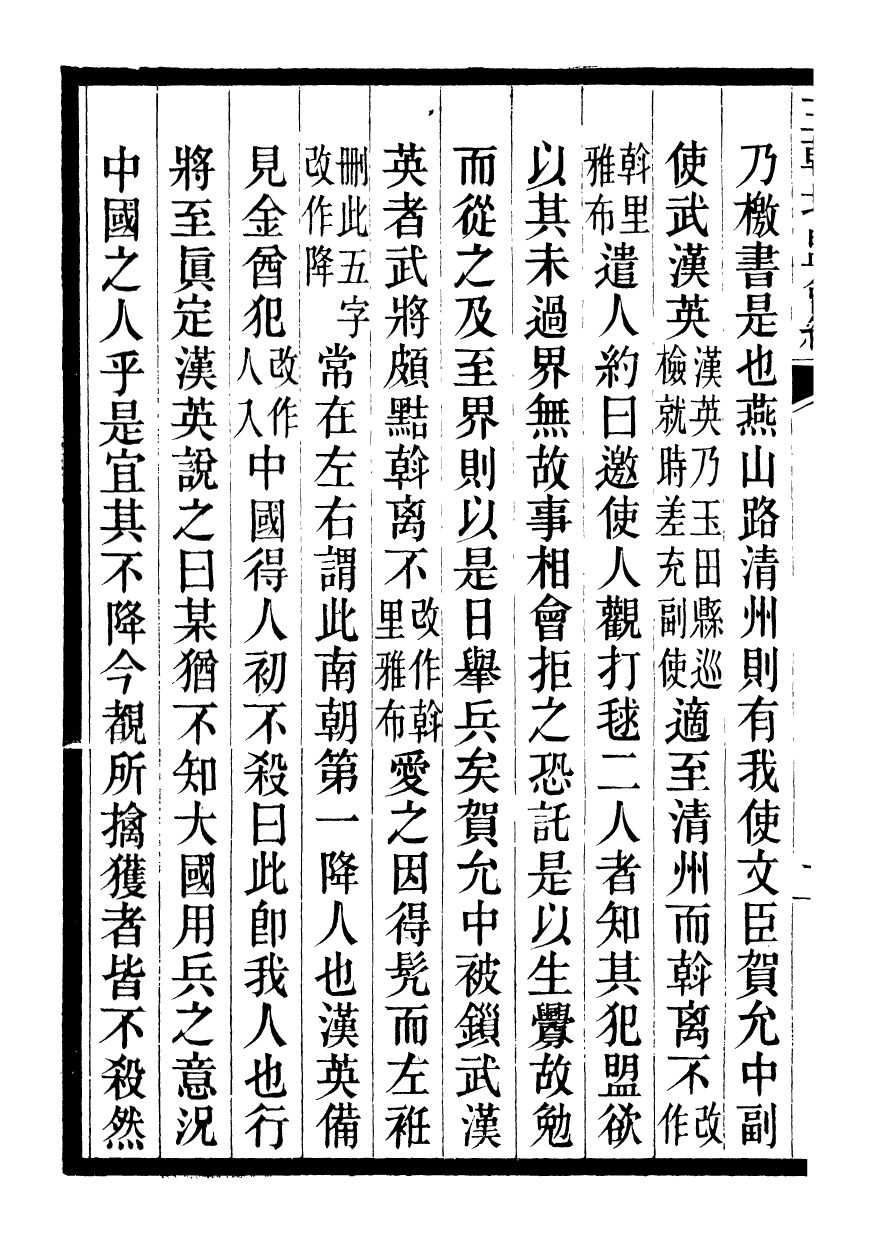 乃檄書是也燕山路清州則有我使文臣賀允中副
使武漢英漢英乃玉田縣巡檢就時差充副使適至清州而斡离不改作
斡里雅布遣人約曰邀使人觀打毬二人者知其犯盟欲
以其未過界無故事相會拒之恐託是以生釁故勉
而從之及至界則以是日舉兵矣賀允中被鎖武漢
英者武將頗黠斡离不改作斡里雅布愛之因得髠而左袵
刪此五字改作降常在左右謂此南朝第一降人也漢英備
見金酋犯改作人入中國得人初不殺曰此卽我人也行
將至眞定漢英說之曰某猶不知大國用兵之意况
中國之人乎是宜其不降今覩所擒獲者皆不殺然